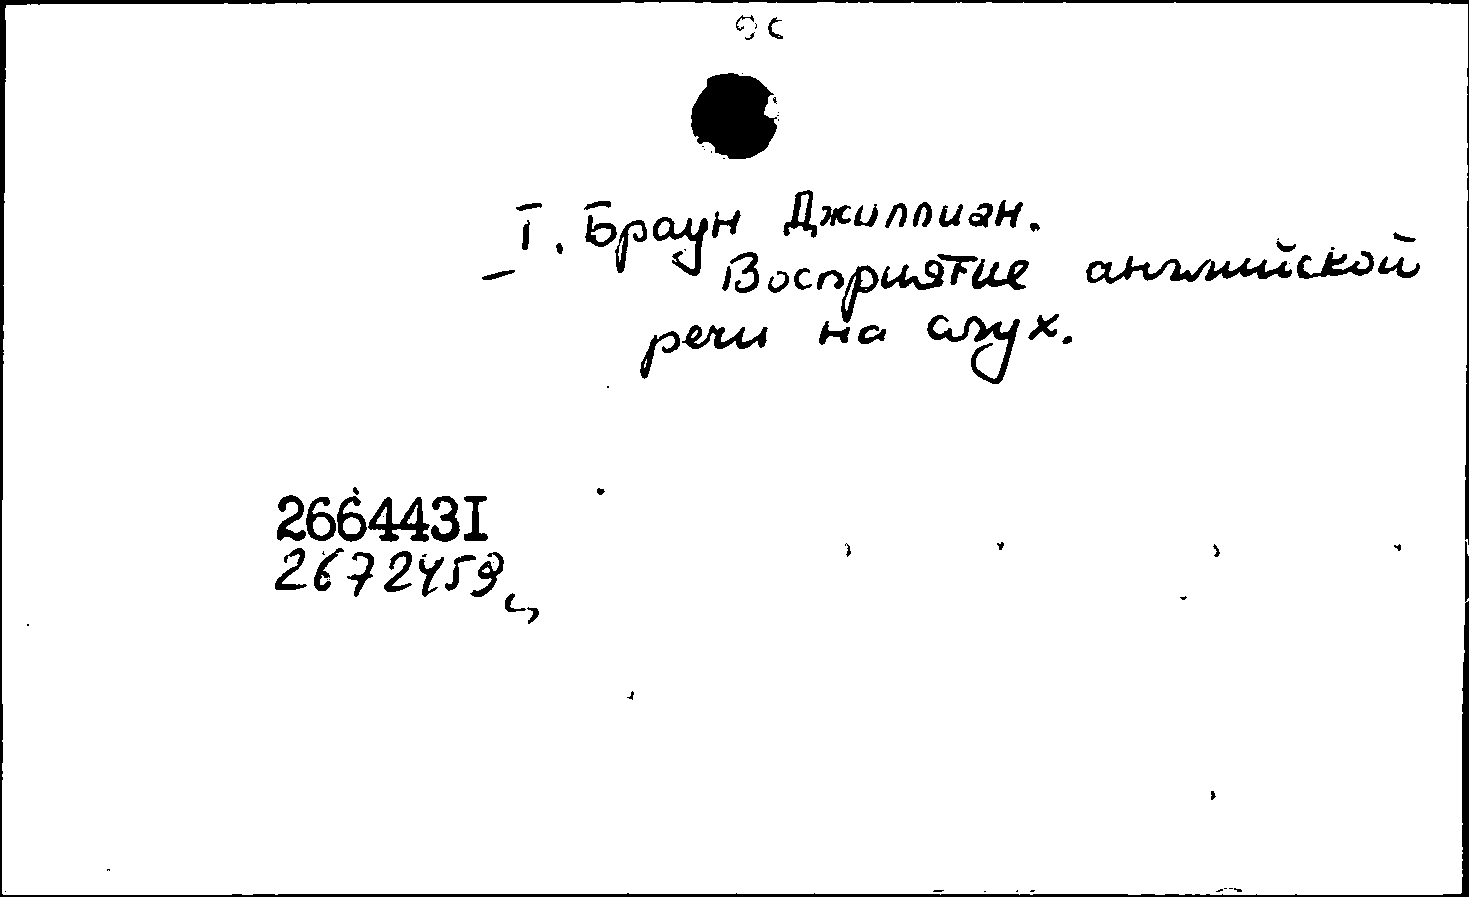 I. Браун Джиллиан.
Восприятие английской
речи на слух.
2664431
2672459